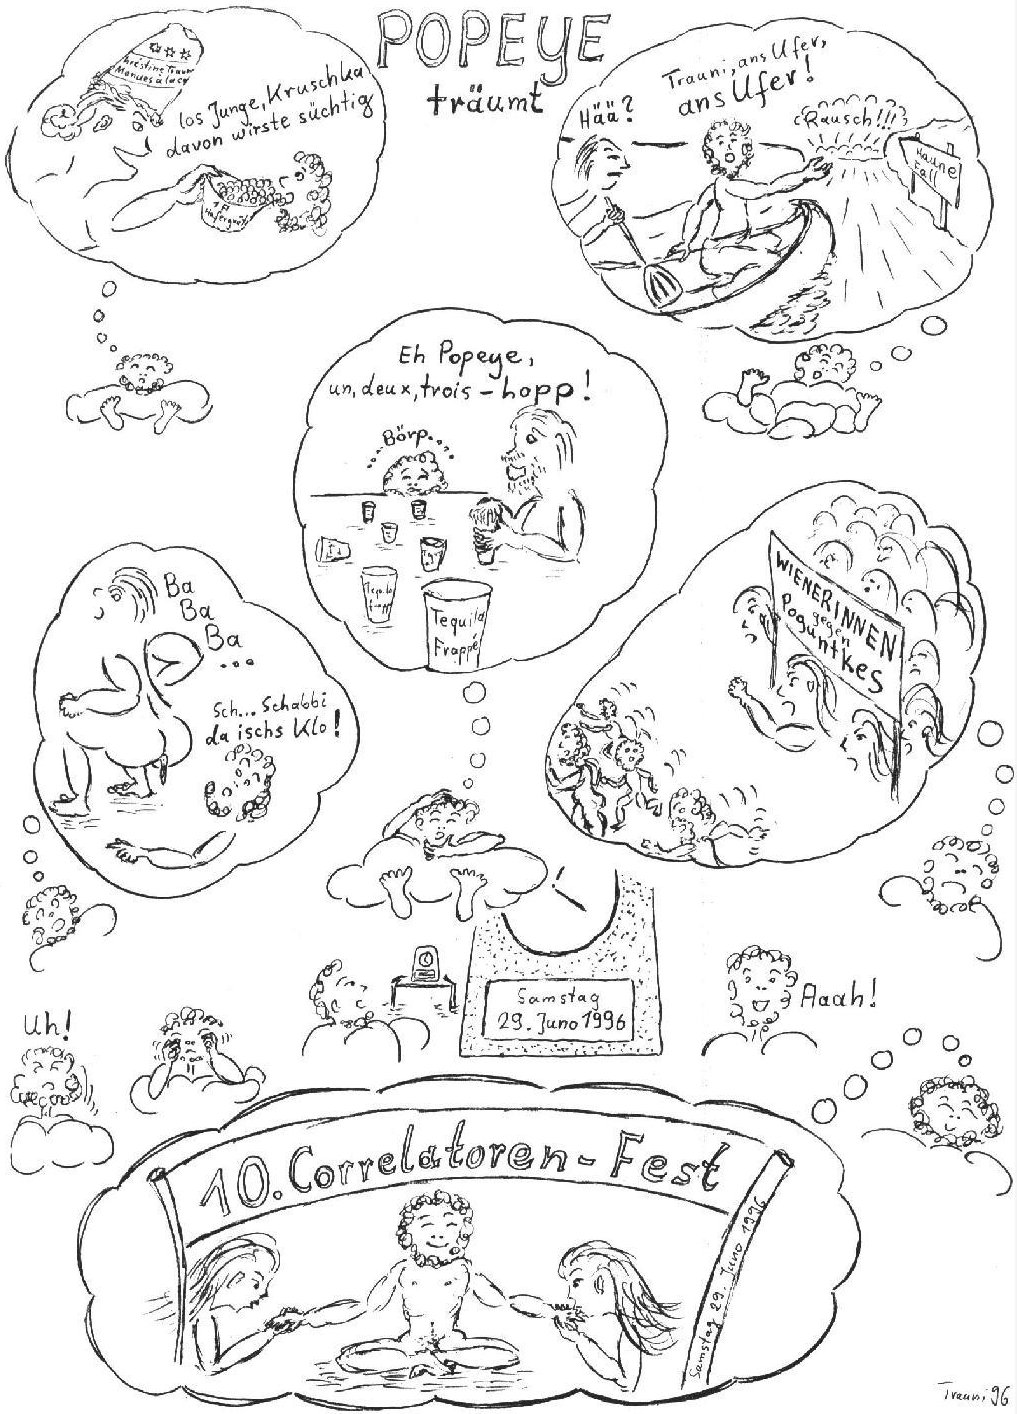 POPEYE
träumt
los Junge, Kruschka
davon wirste süchtig
1A
Hafergrütz
Trauni, ans Ufer,
ans Ufer!
Hää?
Rausch!!!
Haune
Fall
Eh Popeye,
un, deux, trois - hopp!
Börp....
Tequila
Frappé
Tequila
Frappé
Ba
Ba
Ba
...
Sch... Schabbi
da ischs Klo!
WIENERINNEN
gegen
Poguntkes
Samstag
29. Juno 1996
Aaah!
Uh!
10. Correlatoren-Fest
Samstag 29. Juno 1996
Trauni 96